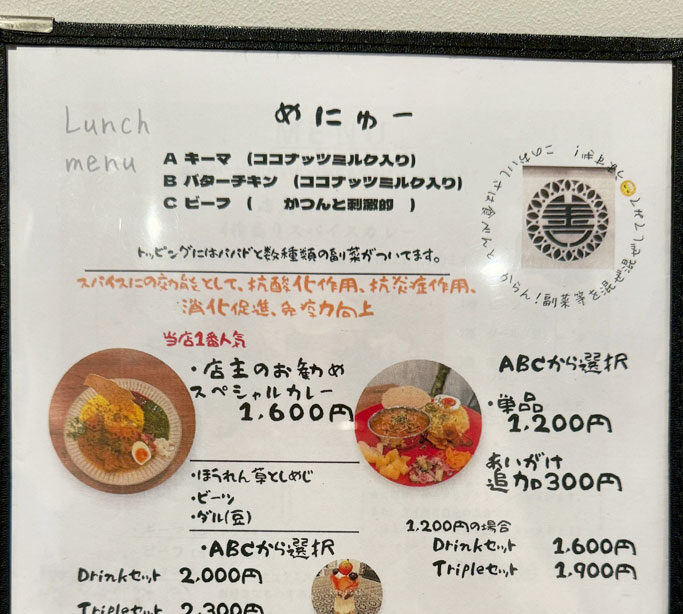 Lunch menu
めにゅー
A キーマ （ココナッツミルク入り）
B バターチキン （ココナッツミルク入り）
C ビーフ （ かつんと刺激的 ）
トッピングにはパパドと数種類の副菜がついてます。
スパイスにの効能として、抗酸化作用、抗炎症作用、
消化促進、免疫力向上
当店1番人気
・店主のお勧め
スペシャルカレー
1,600円
・ほうれん草としめじ
・ビーツ
・ダル(豆)
・ABCから選択
Drinkセット 2,000円
Tripleセット 2,300円
ABCから選択
・単品
1,200円
あいがけ
追加300円
1,200円の場合
Drinkセット 1,600円
Tripleセット 1,900円
からん!副菜等を混ぜ混ぜして
このおいしさは食べんと